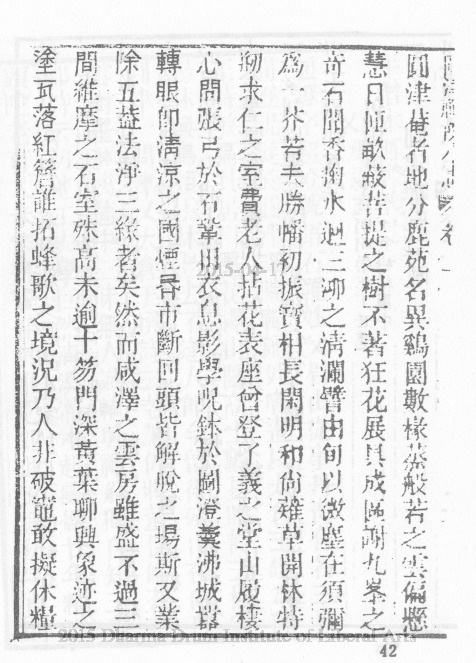 圓津菴者地分鹿苑名異鷄園數椽茨般若之雲偏懸
慧日陲畝蔽菩提之樹不著狂花展具成區謝九峯之
奇石聞香掬水迴三泖之清瀾譬由旬以微塵在須彌
爲一芥若夫勝幡初振寶相長閑明和尚薙草開林特
剏求仁之室費老人拈花表座曾登了義之堂山履樓
心問張弓於石鞏田衣息影學呪鉢於圖澄羹沸城囂
轉眼卽淸涼之國煙昏市斷回頭皆解脫之場斯又業
除五葢法淨三緣者矣然而咸澤之雲房雖盛不過三
間維摩之石室殊高未逾十笏門深黃葉聊興象迹之
塗瓦落紅簷誰拓蜂歌之境況乃人非破竈敢擬休糧
2015-04-17
2015 Dharma Drum Institute of Liberal Arts
42